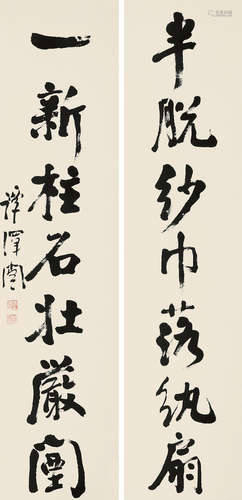 半脱纱巾落纨扇
一新柱石壮严闉
谭泽闿